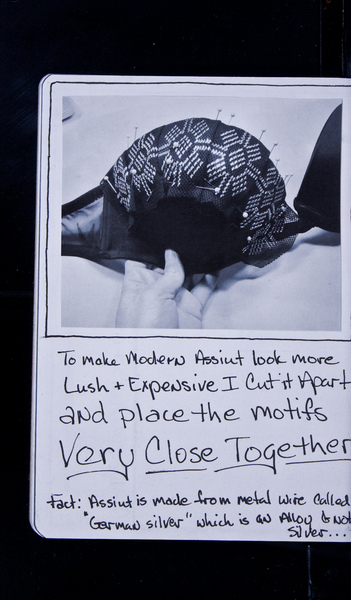 To make Modern Assiut look more
Lush + Expensive I Cut it Apart
and place the motifs
Very Close Together
Fact: Assiut is made from metal wire called
"German silver" which is an Alloy & not
silver...